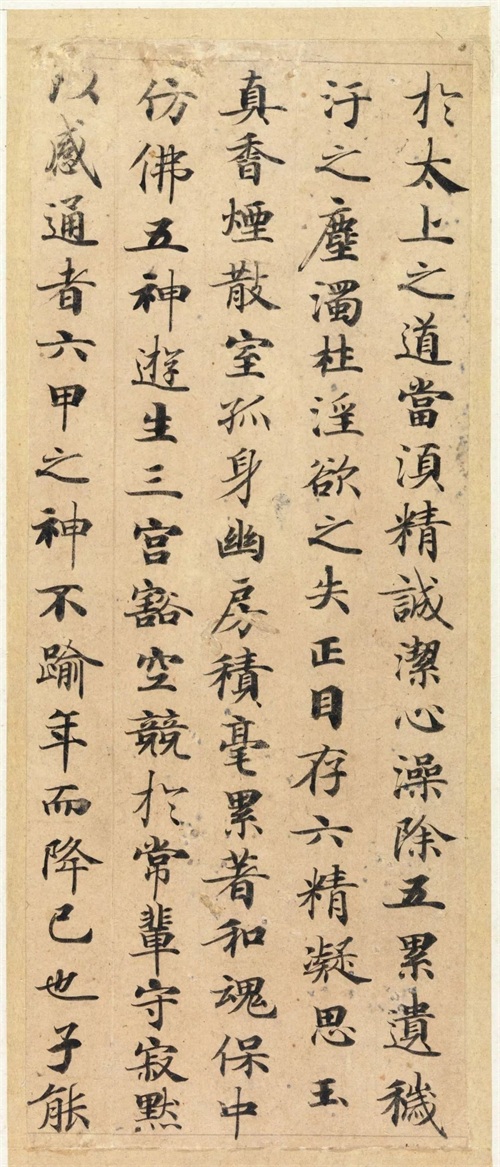 於太上之道當湏精誠潔心澡除五累遺穢
汙之塵濁杜淫欲之失正目存六精凝思玉
真香煙散室孤身幽房積毫累著和魂保中
仿佛五神遊生三宫豁空競於常輩守寂默
以感通者六甲之神不踰年而降已也子能